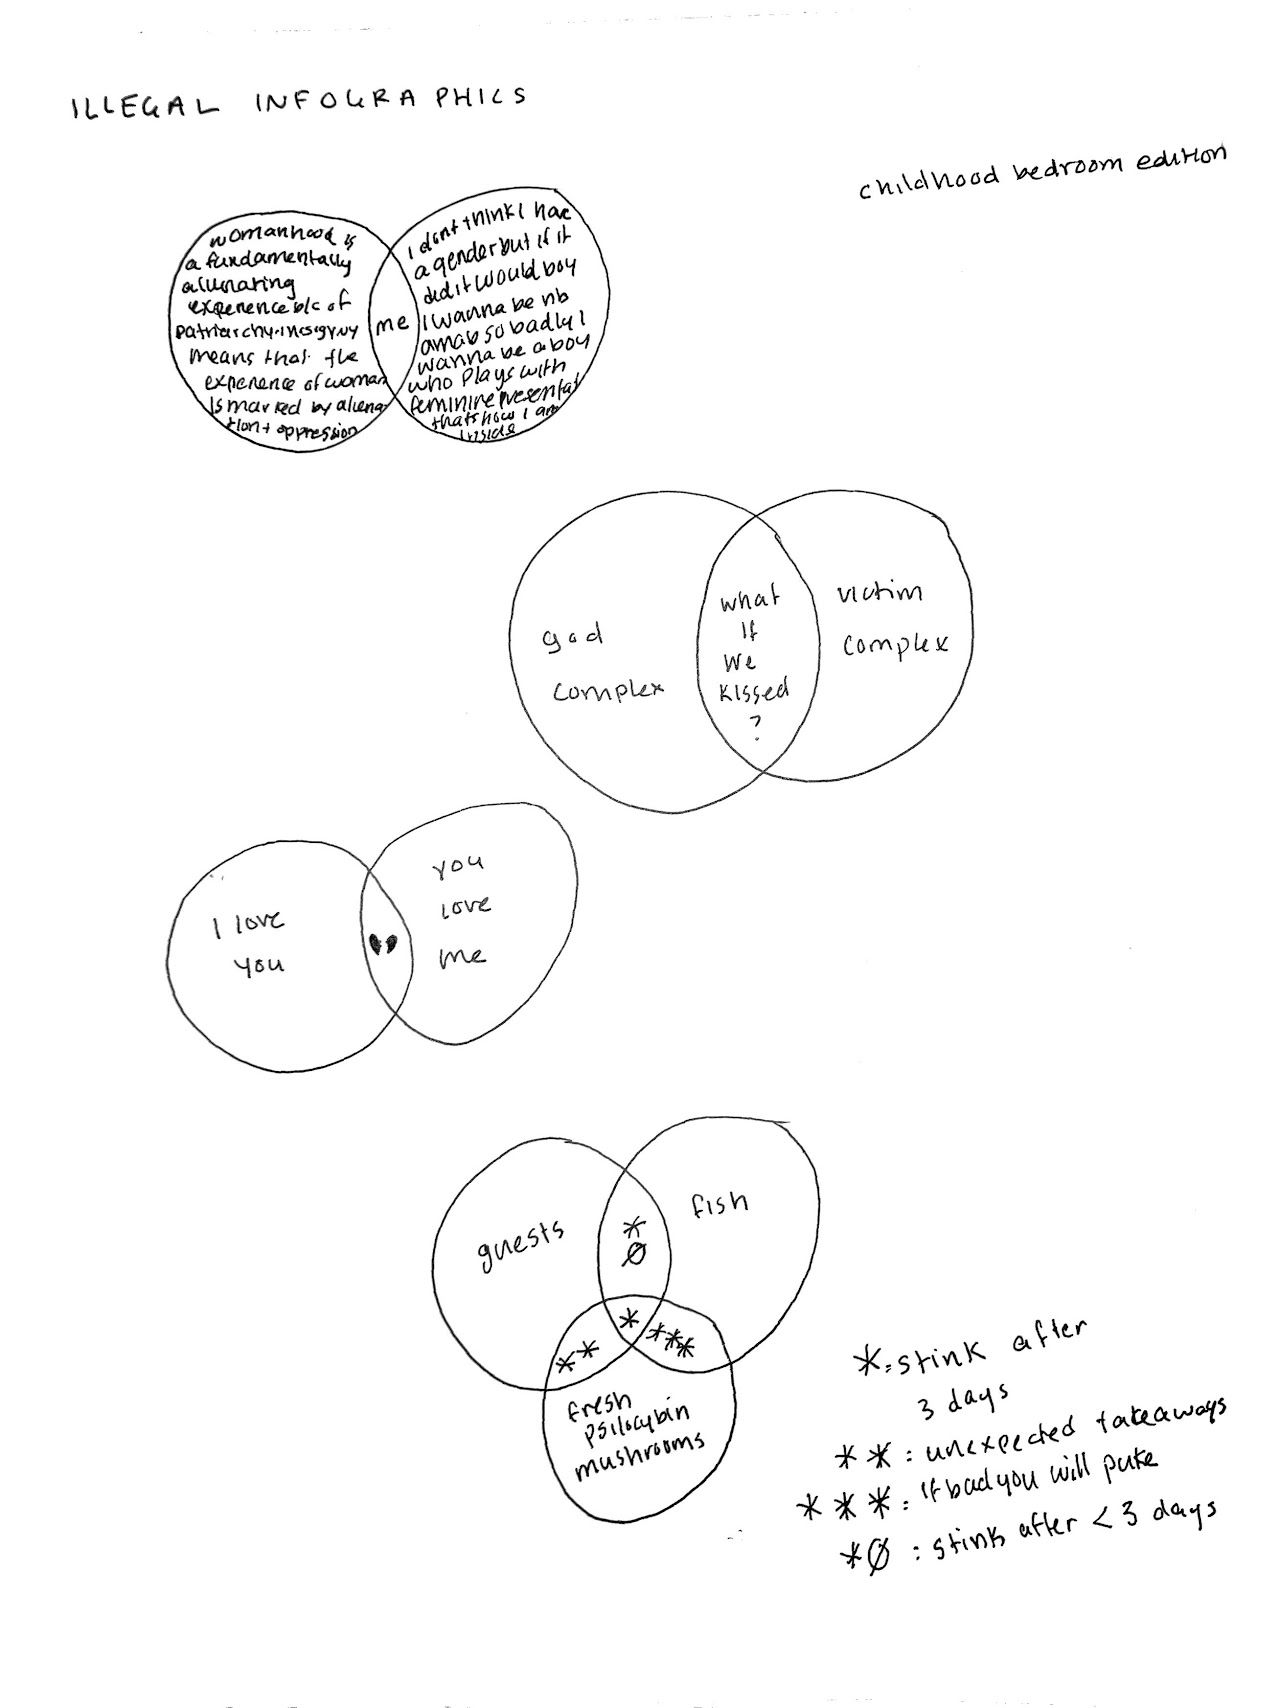 ILLEGAL INFOGRAPHICS
childhood bedroom edition
womanhood is
a fundamentally
alienating
experience b/c of
patriarchy. misogyny
means that the
experience of woman
is marked by aliena
tion + oppression
me
I dont think I have
a gender but if it
did it would boy
I wanna be nb
amab so badly I
wanna be a boy
who plays with
feminine presentat
thats how I am
inside
god
complex
what
if
we
kissed
?
victim
complex
I love
you
you
love
me
guests
fish
*
Ø
*
**
***
fresh
psilocybin
mushrooms
*: stink after
3 days
** : unexpected takeaways
*** : if bad you will puke
*Ø : stink after < 3 days